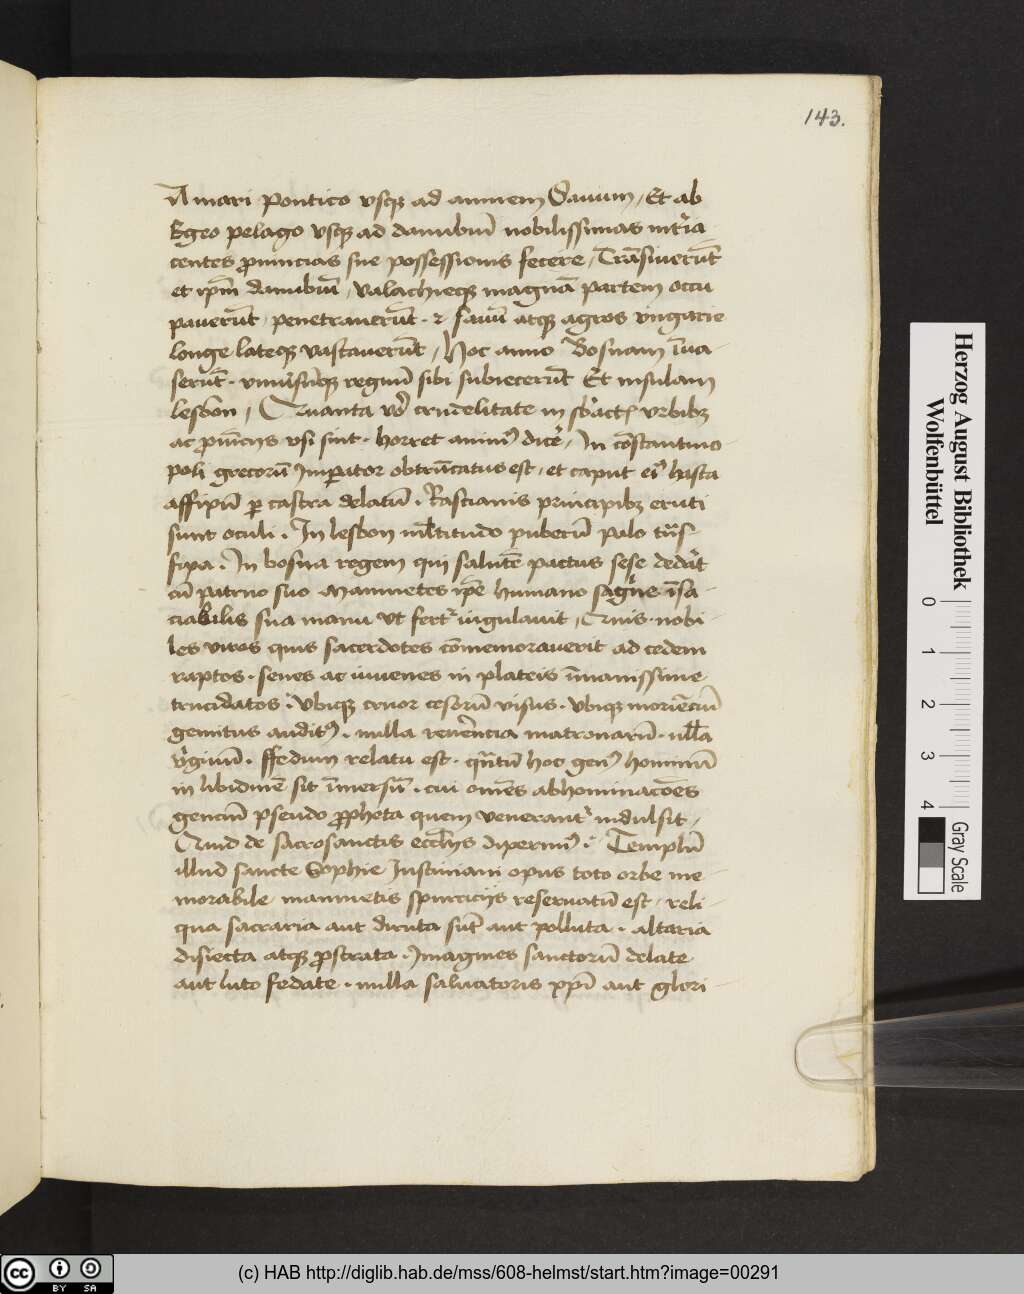 143.
A mari pontico vsqȝ ad amnem Sauum / Et ab
Egeo pelago vsqȝ ad danubiū nobilissimas int'ia
centes ꝓuincias sue possessionis fecere / Trāsiuerūt
et ip̄m danubiū / valachieqȝ magnā partem occu
pauerūt / penetrauerūt · ⁊ sauū atqȝ agros vngarie
longe lateqȝ vastauerūt / Hoc anno Bosnam īua
serūt · regnū sibi subiecerūt Et insulam
lesbon / Quanta crudelitate in vrbibȝ
ac ꝓuīciis vsi sint · horret animꝰ dic'e / In cōstantino
poli grecorū Imꝑator obtrūcatus est · et caput eiꝰ hasta
affixū ꝑ castra delatū · Rascianis principibȝ eruti
sunt oculi · In lesbon ml̄titudo puberū palo
fixa · In bosna regem qui salutē pactus sese
cū patruo suo Maumetes ip̄e humano sāguīe īsa
ciabilis sua manu vt fert᷑ iugulauit / Quis nobi
les viros quis sacerdotes cōmemorauerit ad cedem
raptos · senes ac iuuenes in plateis īmanissime
trucidatos · vbiqȝ cruor cesorū visus · vbiqȝ moriēciū
gemitus auditꝰ · nulla reu'encia matronarū · nll̄a
v'ginū · ffedum relatu est · qn̄tū hoc genꝰ hominū
in libidinē sit īmersū · cui omēs abhominacōes
genciū pseudo ꝓpheta quem venerant᷑ indulsit /
Quid de sacrosanctis eccl̄iis dixerimꝰ · Templū
illud sancte Sophie Iustiniani opus toto orbe me
morabile maumetis spurciciis reseruatū est · reli
qua sacraria aut diruta sūt aut polluta · altaria
disiecta atqȝ ꝓstrata · Imagines sanctorū delate
aut luto fedate · nulla saluatoris xp̄i aut glori
Herzog August Bibliothek
Wolfenbüttel
0 1 2 3 4
Gray Scale
cc BY SA
(c) HAB http://diglib.hab.de/mss/608-helmst/start.htm?image=00291